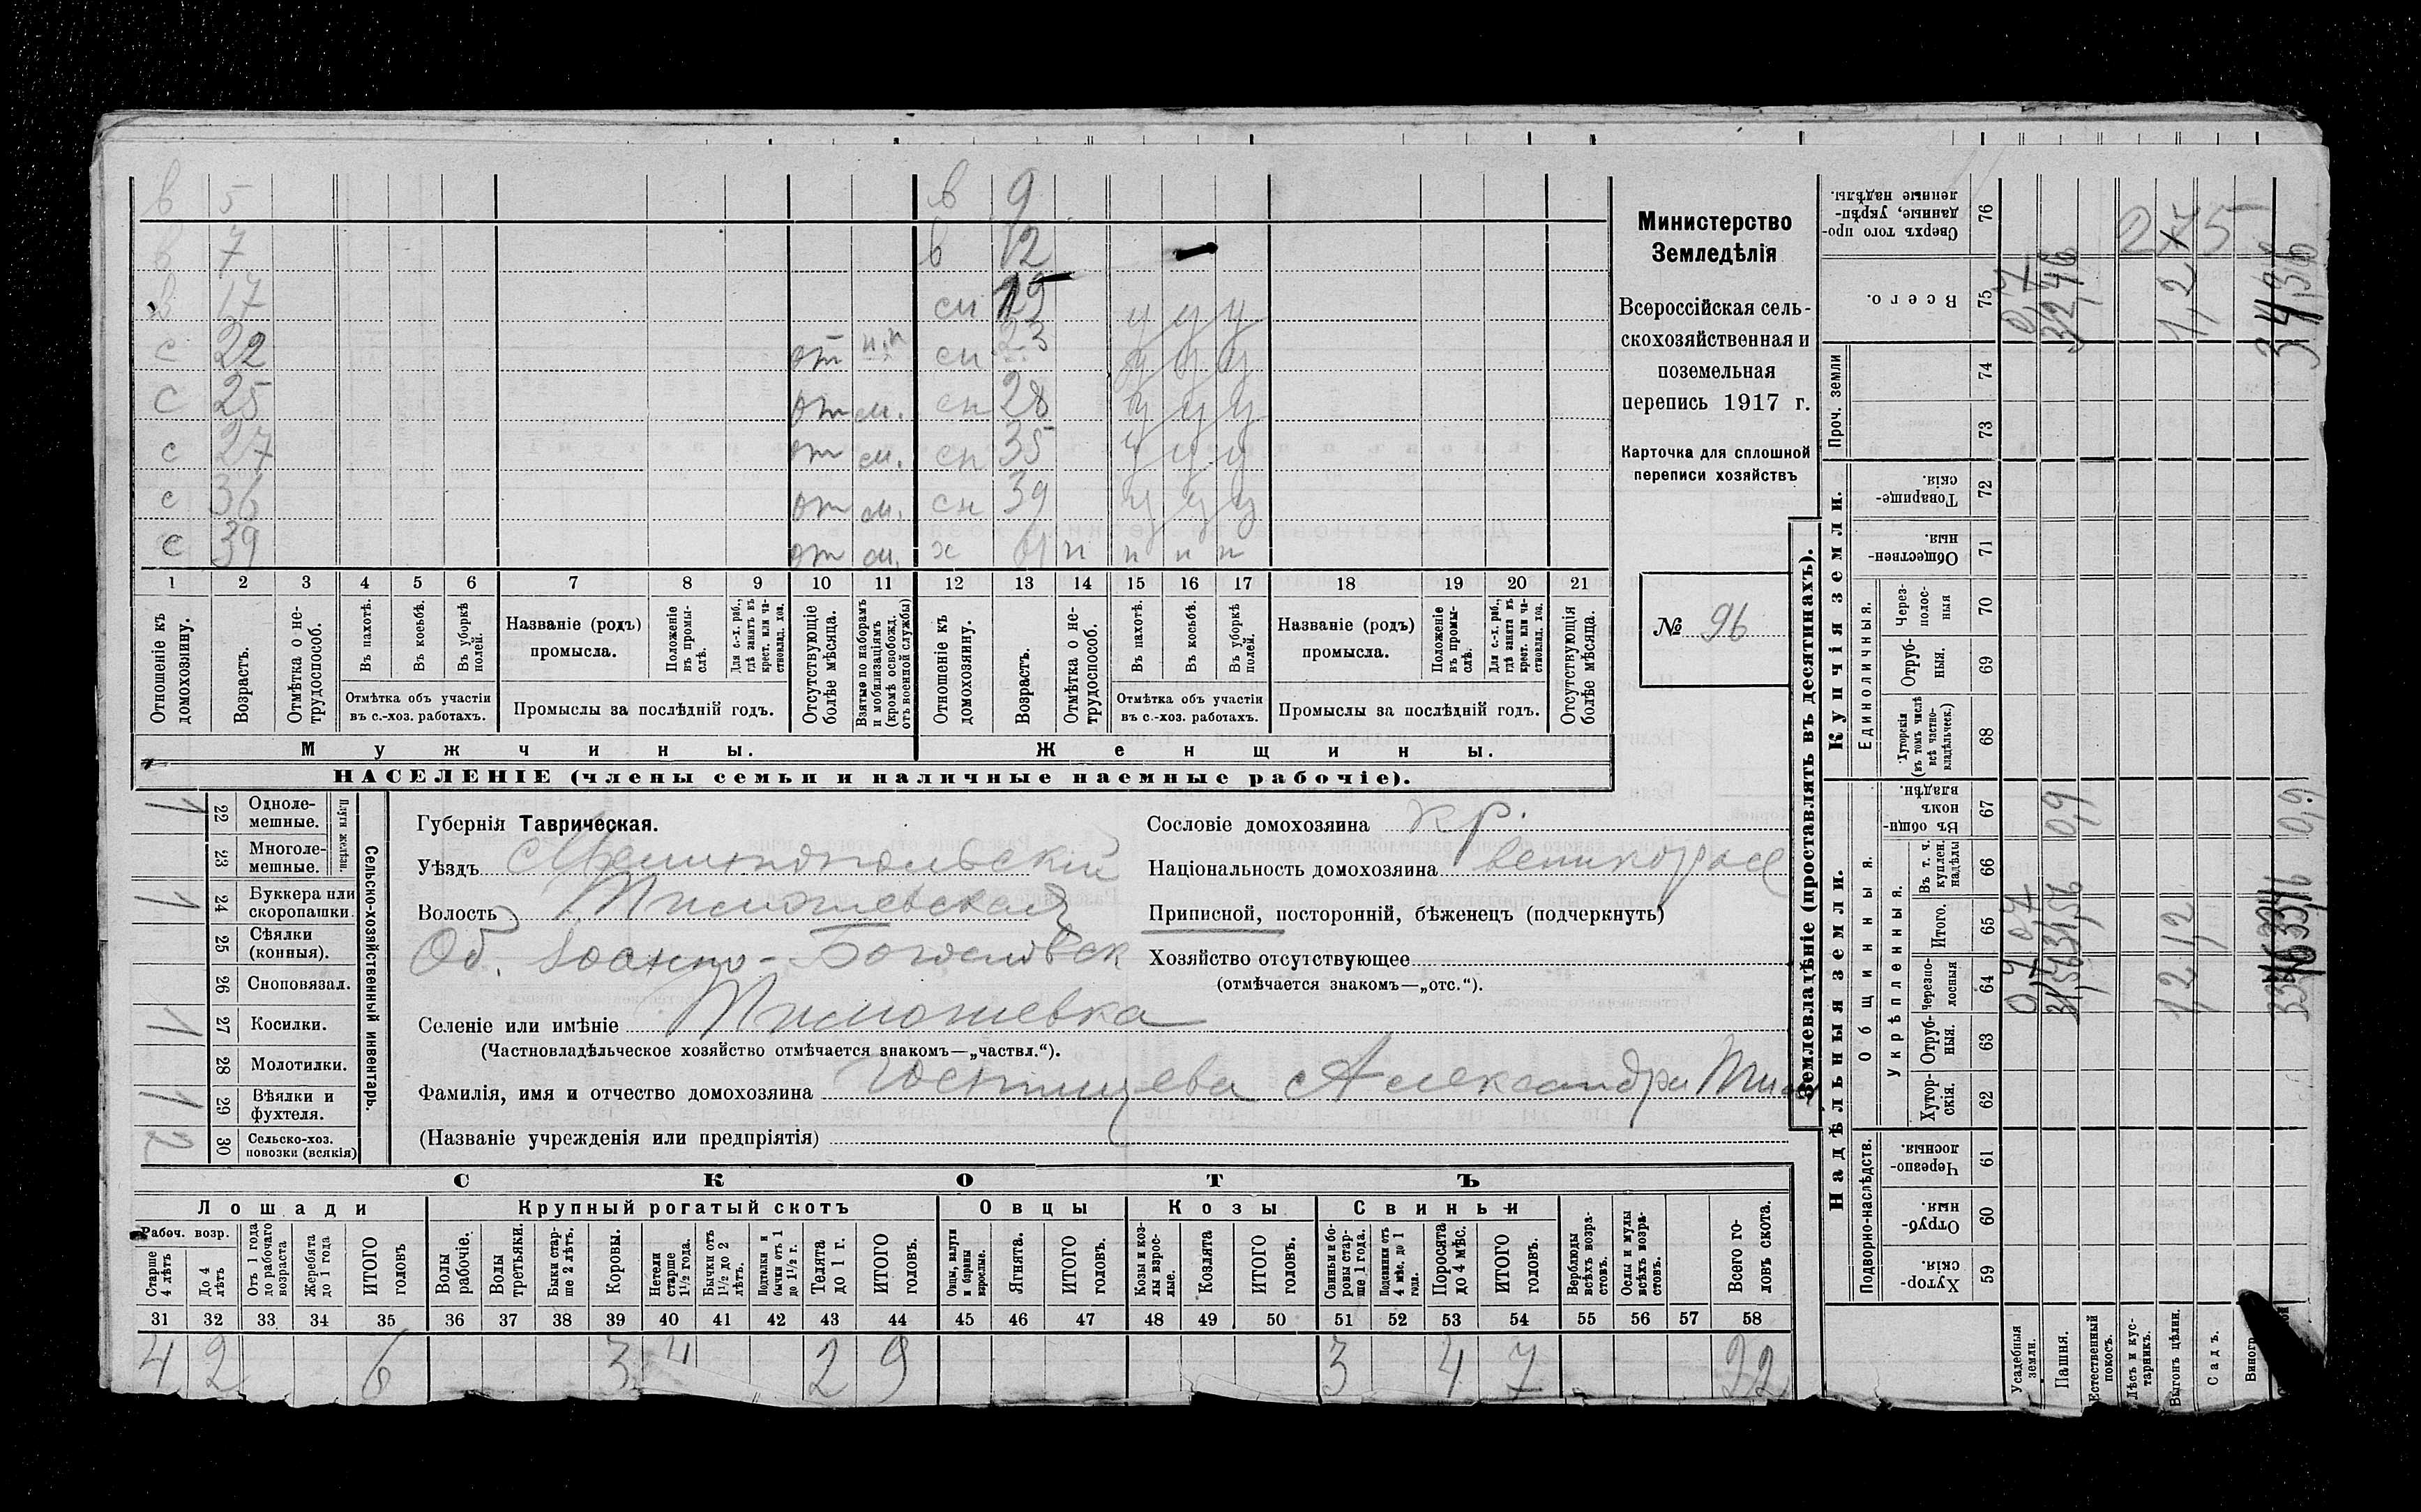 в 5 в 9
в 7 в 12
в 17 сн 19 у у у
с 22 от н.п сн 23 у у у
с 25 от м. сн 28 у у у
с 27 от м. сн 35 у у у
с 36 от м. сн 39 у у у
с 39 от м. х 61 п п п п
1 2 3 4 5 6 7 8 9 10 11 12 13 14 15 16 17 18 19 20 21
Отношеніе къ домохозяину.
Возрастъ.
Отмѣтка о не-трудоспособ.
Въ пахотѣ.
Въ косьбѣ.
Въ уборкѣ полей.
Отмѣтка объ участіи
въ с.-хоз. работахъ.
Названіе (родъ)
промысла.
Положеніе въ промы-слѣ.
Для с.-х. раб., гдѣ занятъ въ крест. или ча-стновлад. хоз.
Промыслы за послѣдній годъ.
Отсутствующіе болѣе мѣсяца.
Взятые по наборамъ и мобилизаціямъ (кромѣ освобожд. отъ военной службы)
Отношеніе къ домохозяину.
Возрастъ.
Отмѣтка о не-трудоспособ.
Въ пахотѣ.
Въ косьбѣ.
Въ уборкѣ полей.
Отмѣтка объ участіи
въ с.-хоз. работахъ.
Названіе (родъ)
промысла.
Положеніе въ промы-слѣ.
Для с.-х. раб., гдѣ занята въ крест. или ча-стновлад. хоз.
Промыслы за послѣдній годъ.
Отсутствующія болѣе мѣсяца.
Мужчины. Женщины.
НАСЕЛЕНІЕ (члены семьи и наличные наемные рабочіе).
Министерство
Земледѣлія
Всероссійская сель-
скохозяйственная и
поземельная
перепись 1917 г.
Карточка для сплошной
переписи хозяйствъ
№ 96
1 22 Одноле-мешные.
23 Многоле-мешные.
Плуги желѣзн.
1 24 Буккера или скоропашки.
25 Сѣялки (конныя).
26 Сноповязал.
1 27 Косилки.
28 Молотилки.
1 29 Вѣялки и фухтеля.
2 30 Сельско-хоз. повозки (всякія)
Сельско-хозяйственный инвентарь.
Губернія Таврическая.
Уѣздъ Мелитопольскій
Волость Тимошевская
Об. Іоанно-Богословск
Селеніе или имѣніе Тимошевка
(Частновладѣльческое хозяйство отмѣчается знакомъ—„частвл.“).
Фамилія, имя и отчество домохозяина Александра Тим
(Названіе учрежденія или предпріятія)
Сословіе домохозяина кр.
Національность домохозяина великоросс
Приписной, посторонній, бѣженецъ (подчеркнуть)
Хозяйство отсутствующее
(отмѣчается знакомъ—„отс.“).
СКОТЪ
Лошади Крупный рогатый скотъ Овцы Козы Свиньи
Рабоч. возр.
Старше 4 лѣтъ
До 4 лѣтъ
Отъ 1 года до рабочаго возраста
Жеребята до 1 года
ИТОГО головъ
Волы рабочіе.
Волы третьяки.
Быки стар-ше 2 лѣтъ.
Коровы.
Нетели старше 1½ года.
Бычки отъ 1½ до 2 лѣтъ.
Подтелки и бычки отъ 1 до 1½ г.
Телята до 1 г.
ИТОГО головъ.
Овцы, валухи и бараны взрослые.
Ягнята.
ИТОГО головъ.
Козы и коз-лы взрос-лые.
Козлята
ИТОГО головъ.
Свиньи и бо-ровы стар-ше 1 года.
Подсвинки отъ 4 мѣс. до 1 года.
Поросята до 4 мѣс.
ИТОГО головъ.
Верблюды всѣхъ возра-стовъ.
Ослы и мулы всѣхъ возра-стовъ.
Всего го-ловъ скота.
31 32 33 34 35 36 37 38 39 40 41 42 43 44 45 46 47 48 49 50 51 52 53 54 55 56 57 58
4 2 6 3 4 2 9 3 4 7 22
Землевладѣніе (проставлять въ десятинахъ).
Надѣльныя земли. Купчія земли.
Проч. земли
Подворно-наслѣдств.
Общинныя.
Укрѣпленныя.
Единоличныя.
Хутор-скія. 59
Отруб-ныя. 60
Черезпо-лосныя. 61
Хутор-скія. 62
Отруб-ныя. 63
Черезпо-лосныя 64
Итого. 65
Въ т. ч. куплен. надѣлы 66
Въ общи-номъ владѣн. 67
Хуторскія (въ томъ числѣ всѣ частно-владѣльческ.) 68
Отруб-ныя. 69
Через-полос-ныя 70
Обществен-ныя. 71
Товарище-скія. 72
73
74
Всего. 75
Сверхъ того про-данные, укрѣп-ленные надѣлы. 76
Усадебныя земли.
Пашня.
Естественный покосъ.
Лѣсъ и кус-тарникъ.
Выгонъ цѣлин.
Садъ.
Виногр
0,7 0,7 0,7
31,56 31,56 0,9 32,46
1,2 1,2 1,2
0,9